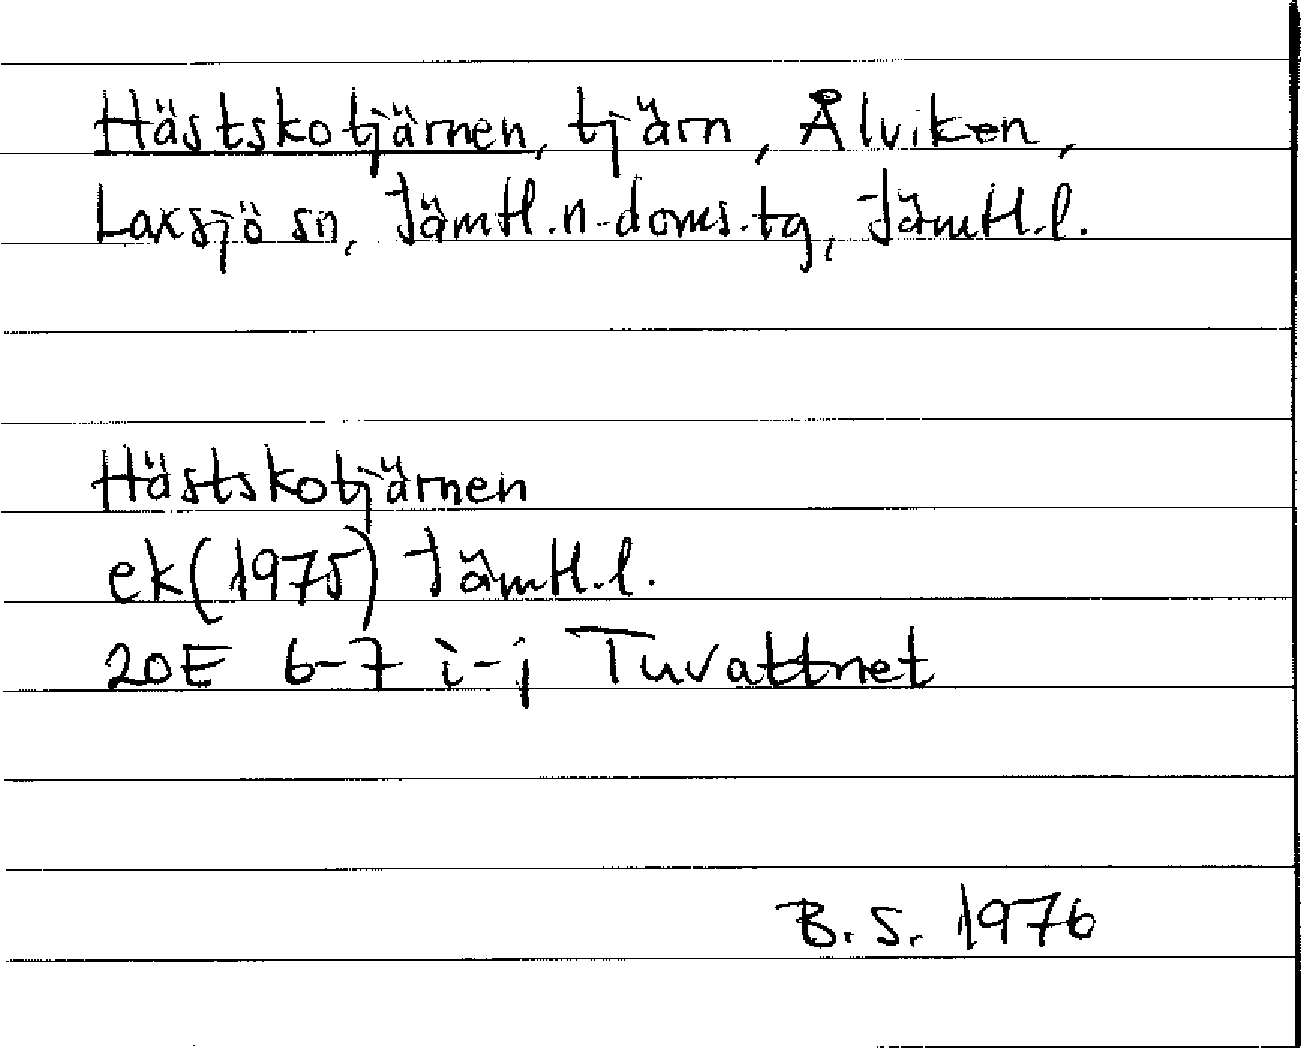 Hästskotjärnen, tjärn, Ålviken,
Laxsjö sn, Jämtl.n.doms.tg, Jämtl.l.
Hästskotjärnen
ek(1975) Jämtl.l.
20E 6-7 i-j Tuvattnet
B.S. 1976